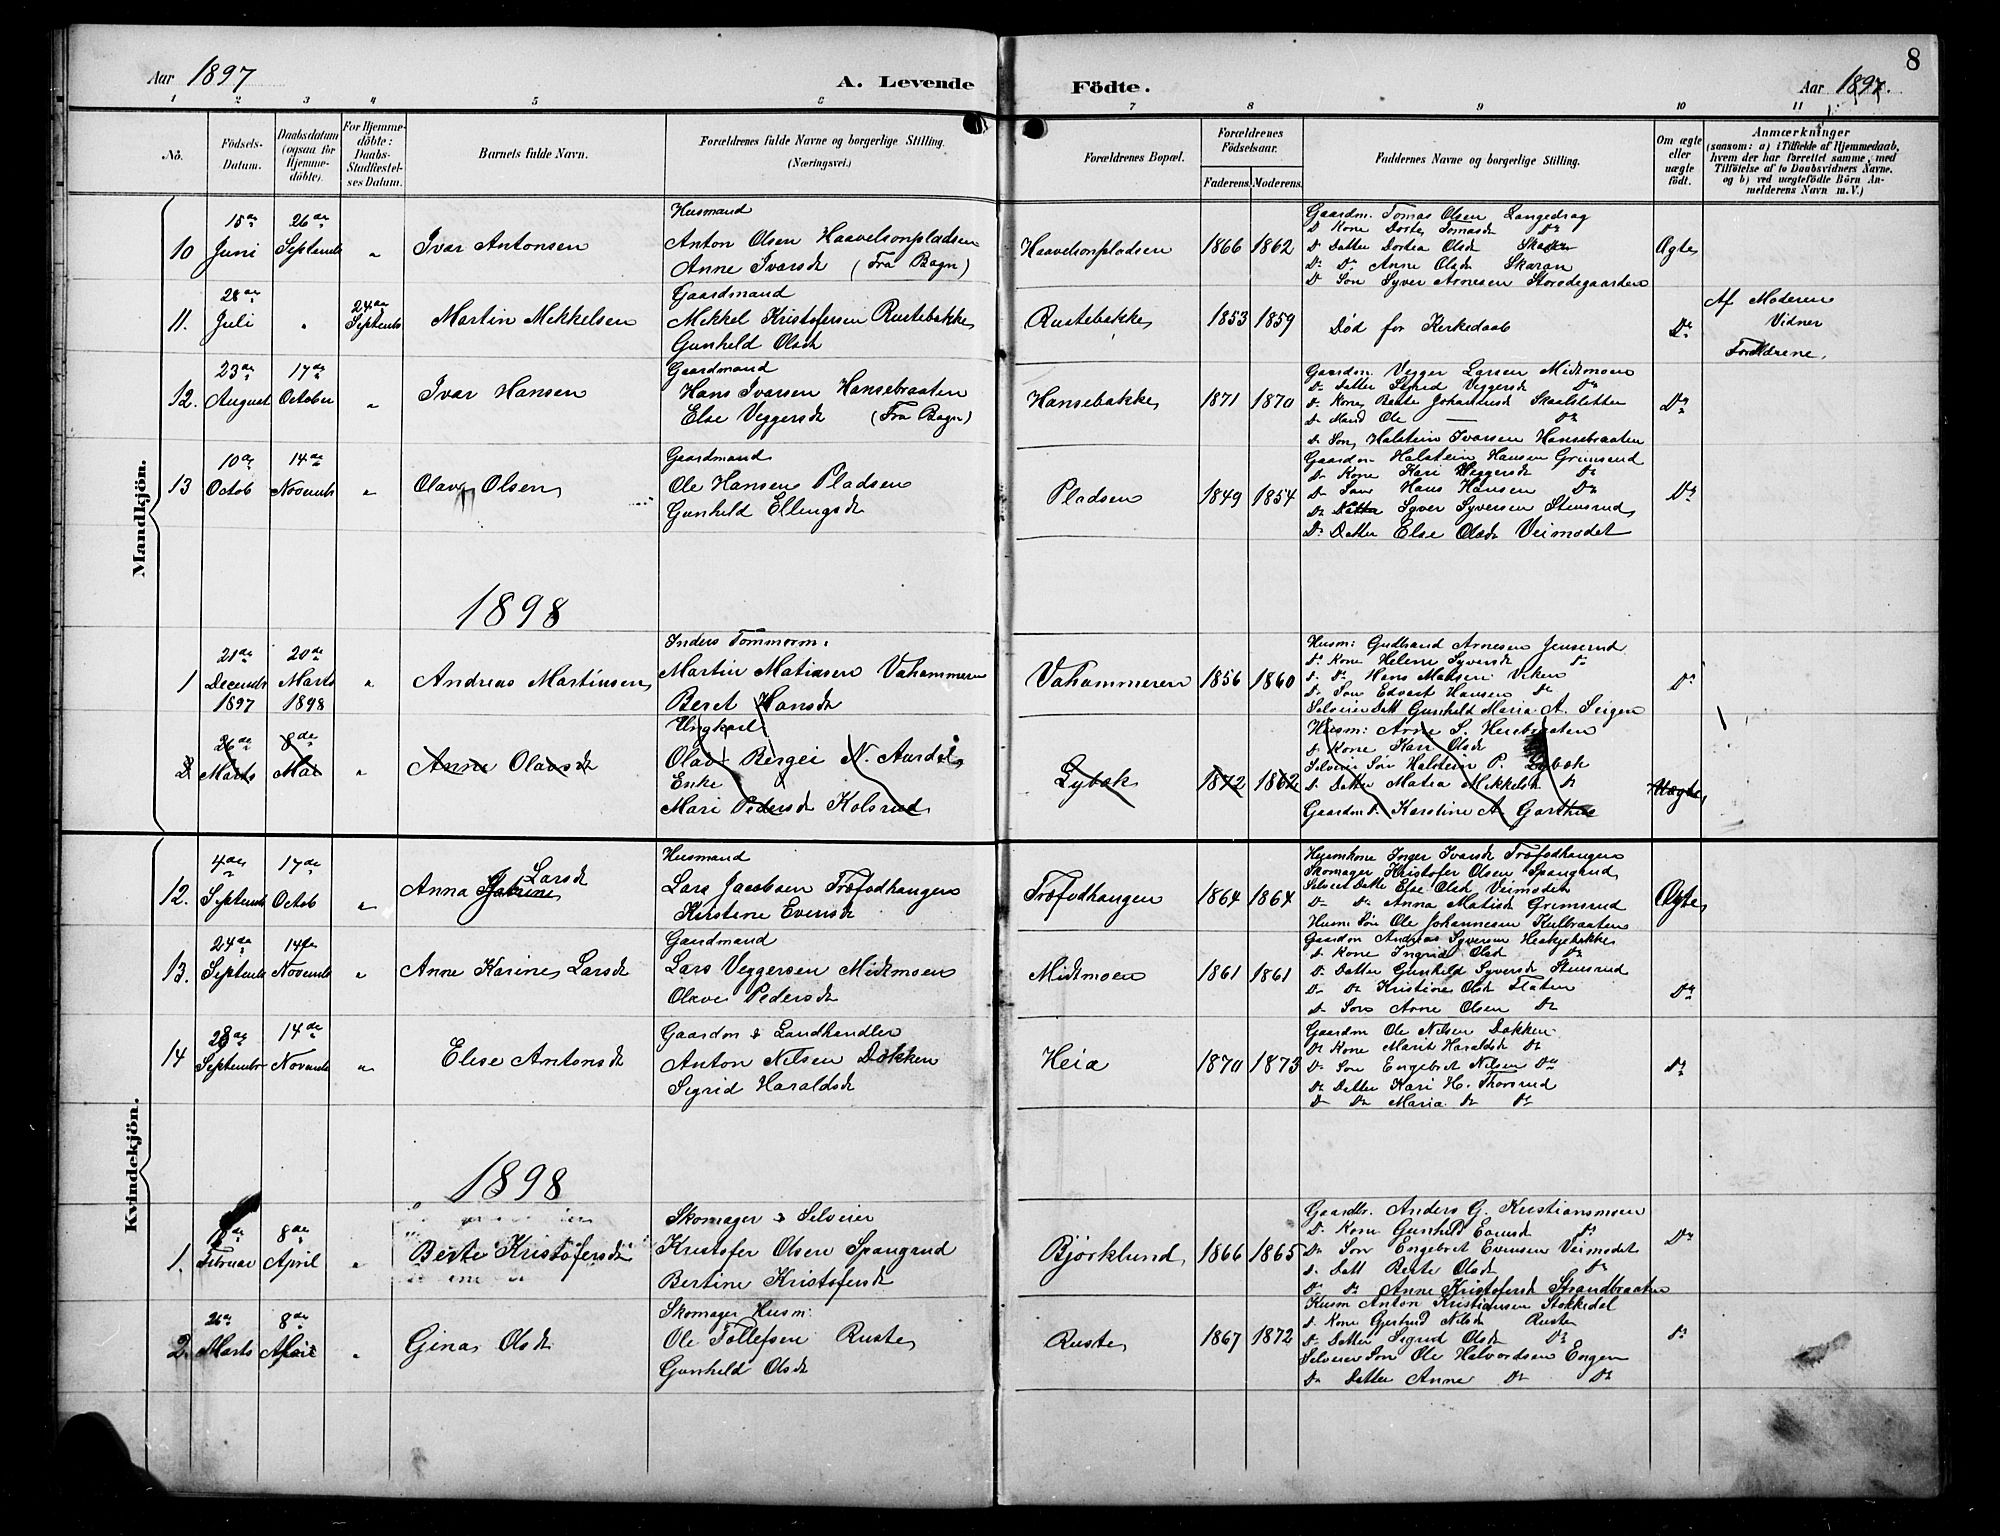 Aar 1897
A. Levende
Födte.
Aar 1897.
8
1 2 3 4 5 6 7 8 9 10 11
No.
Födsels-Datum.
Daabsdatum (ogsaa for Hjemme-döbte).
For Hjemme-döbte: Daabs-Stadfæstel-ses Datum.
Barnets fulde Navn.
Forældrenes fulde Navne og borgerlige Stilling. (Næringsvei.)
Forældrenes Bopæl.
Forældrenes Födselsaar.
Faderens. Moderens.
Faddernes Navne og borgerlige Stilling.
Om ægte eller uægte födt.
Anmærkninger
(saasom: a) i Tilfælde af Hjemmedaab, hvem der har forrettet samme, med Tilföielse af to Daabsvidners Navne. og b) ved uægtefödte Börn An-melderens Navn m.V.)
Mandkjön.
10
15de Juni
26de Septembr
"
Ivar Antonsen
Husmand
Anton Olsen Haavelsonpladsen
Anne Ivarsdr (Fra Bagn)
Haavelsonpladsen
1866 1862
Gaardm. Tomas Olsen Langedrag
Dr Kone Dorte Tomasdr Do
Do Datter Dortea Olsdr
Do Do Anne Olsdr Skaran
Do Søn Syver Arnesen Storødegaarden
Ægte
11.
28de Juli
"
24de Septembr
Martin Mekkelsen
Gaardmand
Mekkel Kristofersen Rustebakke
Gunheld Olsdr
Rustebakke
1853 1859
Død for Kerkedaab
Do
Af Moderen
Vidner
Forældrene.
12.
23de August
17de October
"
Ivar Hansen
Gaardmand
Hans Ivarsen Hansebraaten
Else Veggersdr (Fra Bagn)
Hansebakke
1871 1870
Gaardm. Vegger Larsen Midtmoen
Do Datter Veggersdr Do
Do Kone Berte Johannesdr Skaalstetter
Do Mand Ole — Do
Do Søn Halstein Ivarsen Hansebraaten
Do
13
10de Octob
14de Novembr
"
Olav Olsen
Gaardmand
Ole Hansen Pladsen
Gunheld Ellingsdr
Pladsen
1849 1854
Gaardm Halstein Hansen Grimsrud
Do Kone Kari Veggersdr Do
Do Søn Hans Hansen Do
Do Datter Syver Syversen Stensrud
Do Datter Else Olsdr Veimodet
Do
1898
1
21de Decembr 1897
20de Marts 1898
"
Andreas Martinsen
Inders Tømmerm.
Martin Matiasen Vahammeren
Beret Hansdr
Vahammeren
1856 1860
Husm: Gudbrand Arnesen Jensrud
Do Kone Helene Syversdr Do
Do Do Hans Madsen Viken
Do Søn Edvart Hansen Do
Selveier Datt Gunheld Maria A.
Do
2
26de Marts
8de Mai
"
Anne Olavsdr
Ungkarl
Olav Bergei N. Aurdal
Enke
Mari Pedersdr Kolsrud
Lybæk
1872 1862
Husm: Arne S.
Do Kone Kari Olsdr
Selveier Søn Halstein P. Lybæk
Do Datter Matea Mekkelsdr Do
Gaardm D. Karstine A. Garthus
Uægte
Kvindekjön.
12.
4de Septembr
17de Octob
"
Anna Larsdr
Husmand
Lars Jacobsen Trøfodhangen
Kirstine Evensdr
Trøfodhangen
1864 1864
Husmkone Inger Ivarsdr Trøfodhangen
Skomager Kristofer Olsen Spangrud
Selveier Datter Else Olsdr Veimodet
Do Do Anna Matisdr Grimsrud
Husm: Søn Ole Johannesen Kulbraaten
Ægte
13.
24de Septembr
14de Novembr
"
Anne Karine Larsdr
Gaardmand
Lars Veggersen Midtmoen
Olave Pedersdr
Midtmoen
1861 1861
Gaardm Andreas Syversen
Do Kone Ingrid Olsdr Do
Do Datter Gunheld Syversdr Stensrud
Do Do Kristine Olsdr Flaten
Do Søn Arne Olsen Do
Do
14
28de Septembr
14de Novembr
"
Elise Antonsdr
Gaardm & Landhandler
Anton Nelsen Dokken
Sigrid Haraldsdr
Heia
1870 1873
Gaardm Ole Nelsen Dokken
Do Kone Marit Haraldsdr Do
Do Søn Engebret Nelsen Do
Do Datter Kari H. Thorsrud
Do Do Maria Do Do
Do
1898
1.
Februar
8de April
"
Berte Kristofersdr
Skomager & Selveier
Kristofer Olsen Spangrud
Bertine Kristofersdr
Bjørklund
1866 1865
Gaardbr. Anders G. Kristiansmoen
Do Kone Gunheld Evensdr Do
Do Søn Engebret Evensen Veimodet
Do Datt Berte Olsdr Do
Do Do Anne Kristofersdr Strandbraaten
Do
2.
26de Marts
8de April
"
Gina Olsdr
Skomager Husm:
Ole Tollefsen Ruste
Gunheld Olsdr
Ruste
1867 1872
Husm Anton Kristiansen Stokkedal
Do Kone Gertrud Nilsdr Ruste
Do Datter Sigrid Olsdr Do
Selveier Søn Ole Halvordsen Engen
Do Datter Anne Do Do
Do